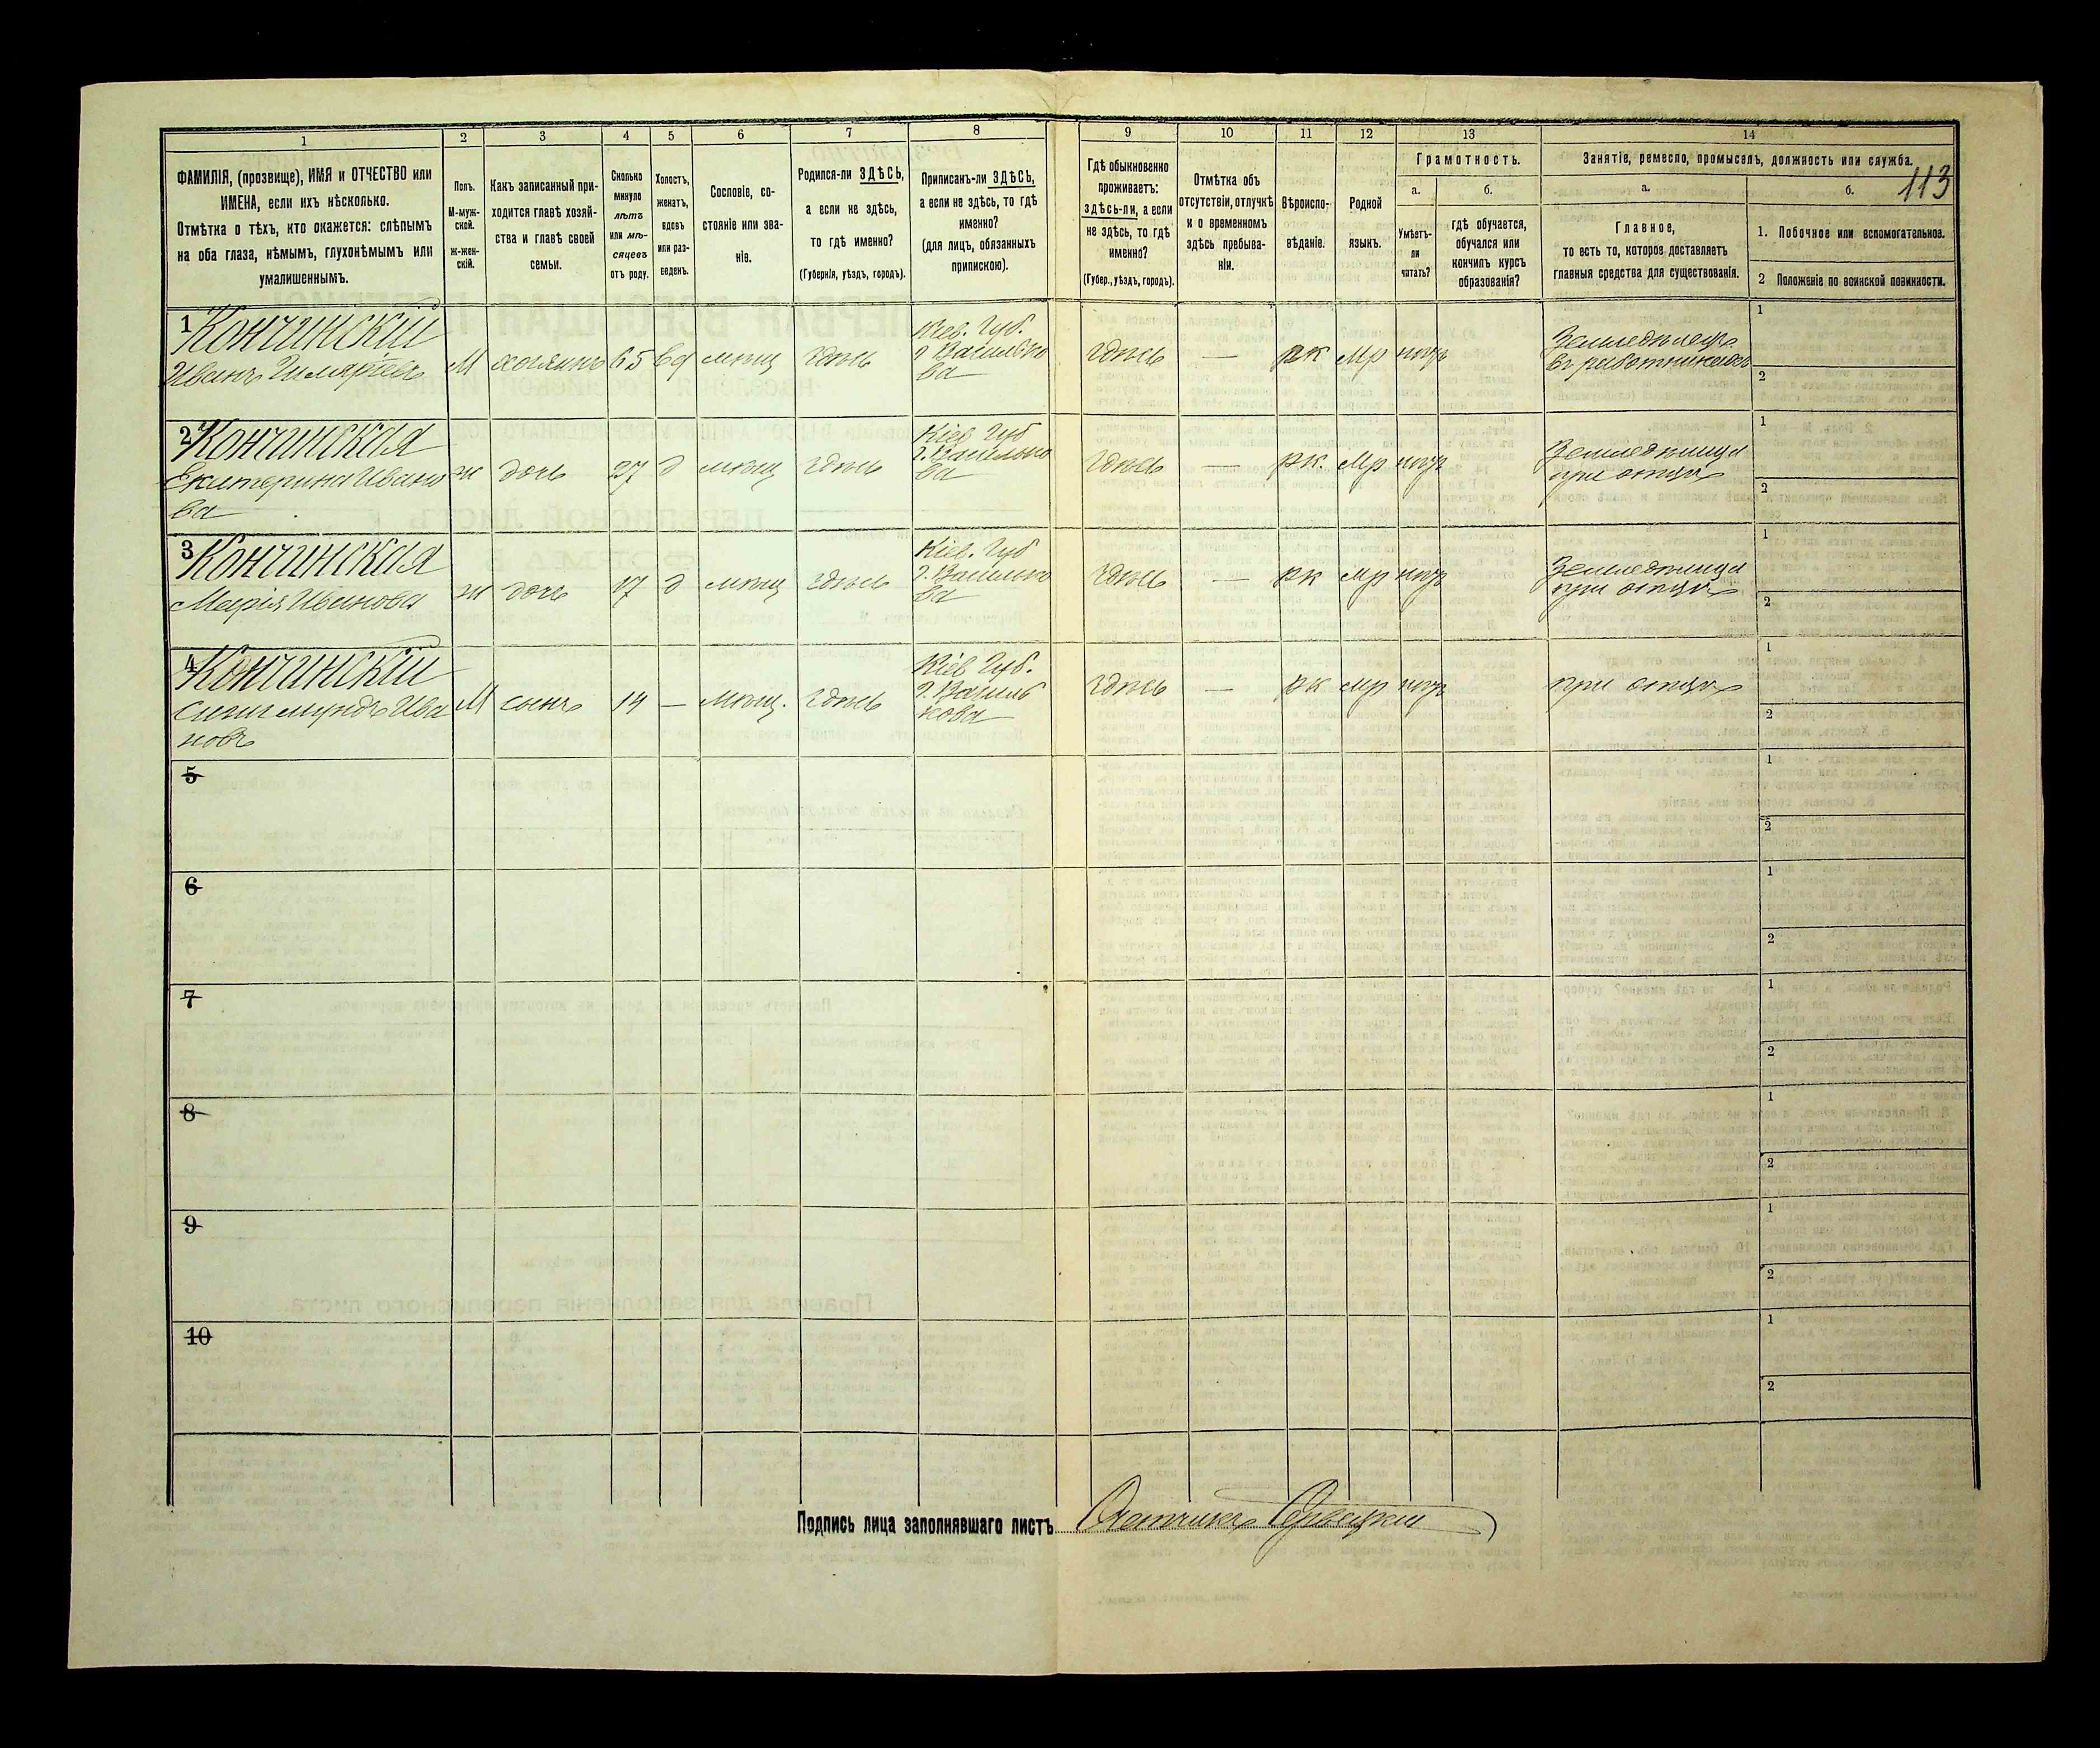 1 2 3 4 5 6 7 8 9 10 11 12 13 14
113
ФАМИЛІЯ, (прозвище), ИМЯ и ОТЧЕСТВО или
ИМЕНА, если ихъ нѣсколько.
Отмѣтка о тѣхъ, кто окажется: слѣпымъ
на оба глаза, нѣмымъ, глухонѣмымъ или
умалишеннымъ.
Полъ.
М-муж-
ской.
ж-жен-
скій.
Какъ записанный при-
ходится главѣ хозяй-
ства и главѣ своей
семьи.
Сколько
минуло
лѣтъ
или мѣ-
сяцевъ
отъ роду.
Холостъ,
женатъ,
вдовъ
или раз-
веденъ.
Сословіе, со-
стояніе или зва-
ніе.
Родился-ли ЗДѢСЬ,
а если не здѣсь,
то гдѣ именно?
(Губернія, уѣздъ, городъ).
Приписанъ-ли ЗДѢСЬ,
а если не здѣсь, то гдѣ
именно?
(для лицъ, обязанныхъ
припискою).
Гдѣ обыкновенно
проживаетъ:
здѣсь-ли, а если
не здѣсь, то гдѣ
именно?
(Губер., уѣздъ, городъ).
Отмѣтка объ
отсутствіи, отлучкѣ
и о временномъ
здѣсь пребыва-
ніи.
Вѣроиспо-
вѣданіе.
Родной
языкъ.
Грамотность.
а.
Умѣетъ-
ли
читать?
б.
гдѣ обучается,
обучался или
кончилъ курсъ
образованія?
Занятіе, ремесло, промыселъ, должность или служба.
а.
Главное,
то есть то, которое доставляетъ
главныя средства для существованія.
б.
1. Побочное или вспомогательное.
2 Положеніе по воинской повинности.
1 Кончинскій
Иванъ
М хозяинъ 65 вд мѣщ здѣсь
Кіев. Губ.
г. Василько
ва
здѣсь — рк нгр
Земледѣлецъ
въ работникахъ
1
2
2 Кончинская
Екатерина Ивано
ва
ж дочь 27 д мѣщ здѣсь
Кіев Губ
г. Василько
ва
здѣсь — рк. нгр
Земледѣлица
при отцѣ
1
2
3 Кончинская
Марія Иванова
ж дочь 17 д мѣщ здѣсь
Кіев. Губ
г. Василько
ва
здѣсь — рк нгр
Земледѣлица
при отцѣ
1
2
4 Кончинскій
Сигизмундъ Ива
новъ
М сынъ 14 — мѣщ. здѣсь
Кіев Губ.
г. Василь
кова
здѣсь — рк нгр
при отцѣ
1
2
5
1
2
6
1
2
7
1
2
8
1
2
9
1
2
10
1
2
Подпись лица заполнявшаго листъ Счетчикъ